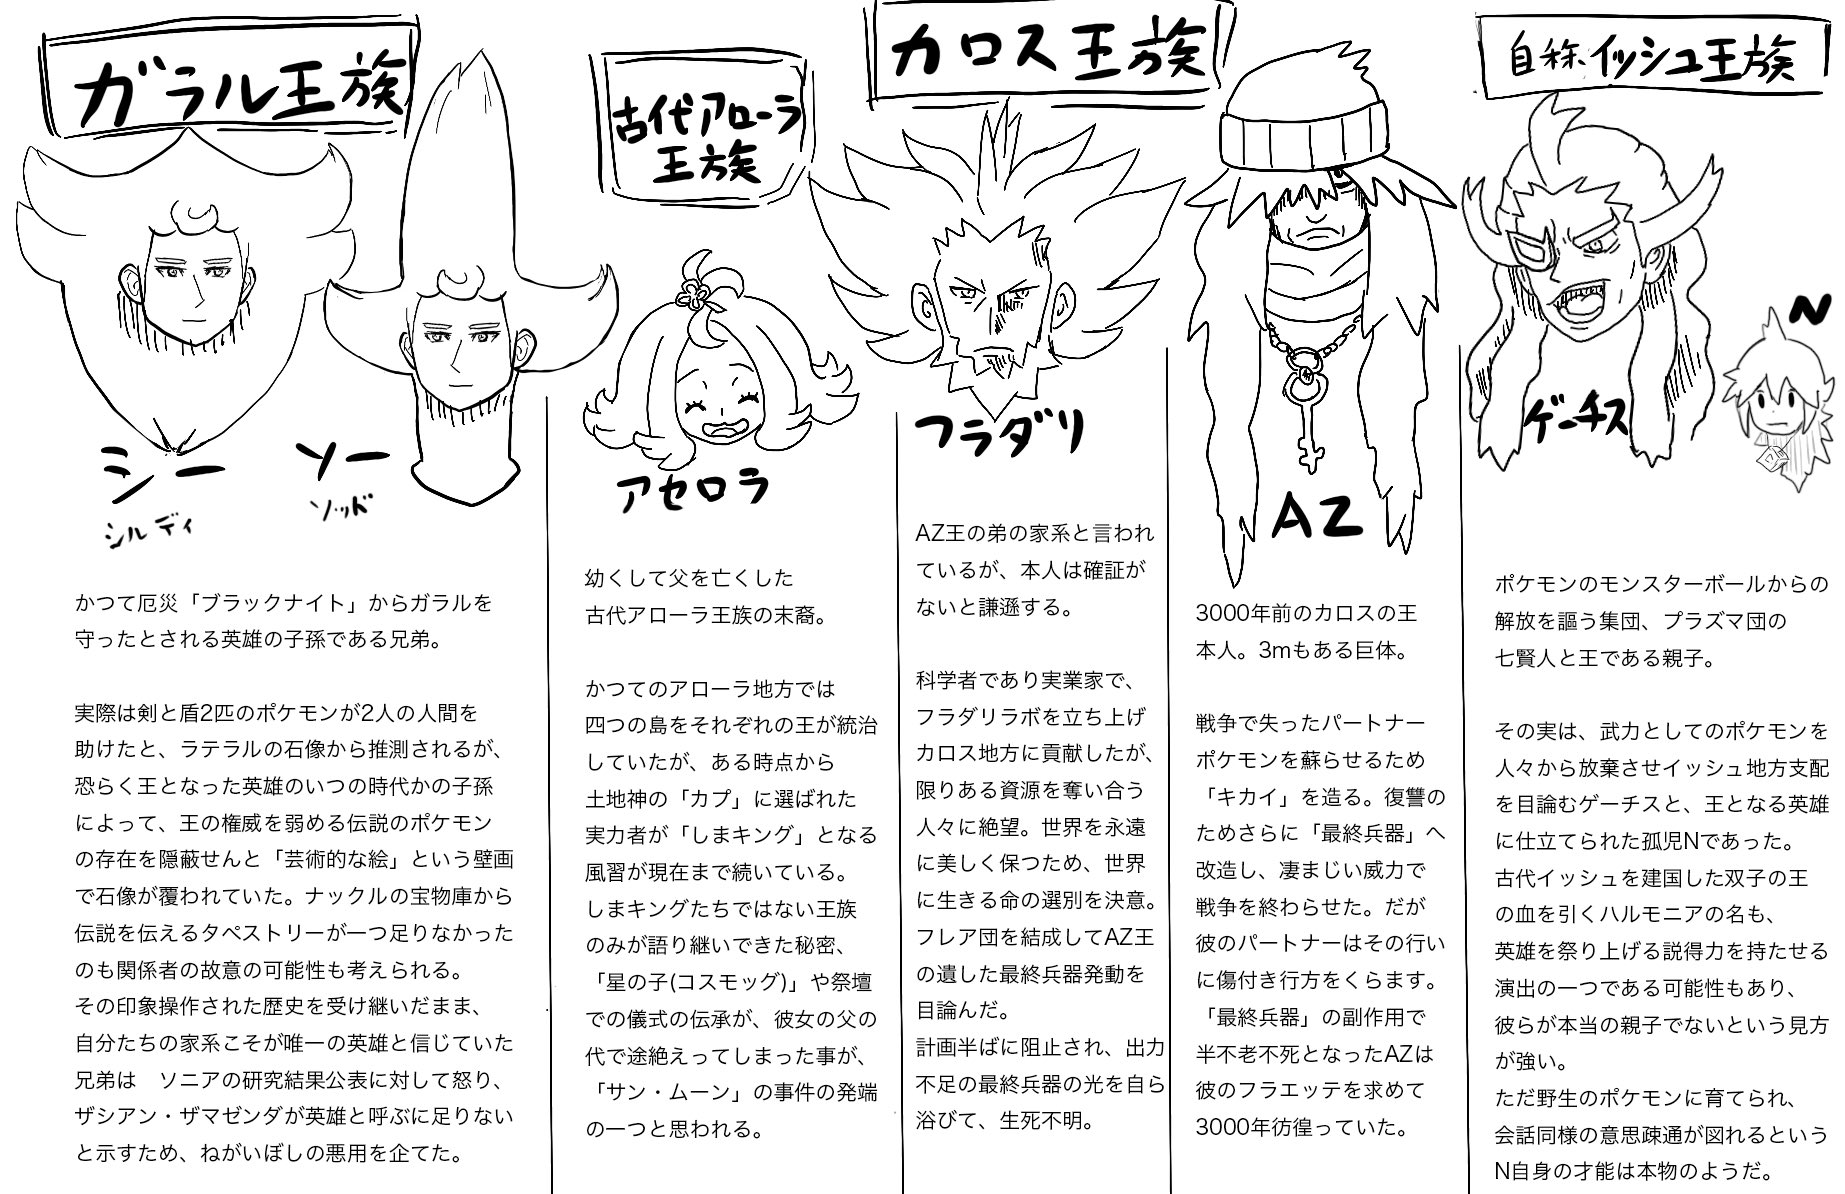 ガラル王族
シー
シルディ
ソー
ソッド
かつて厄災「ブラックナイト」からガラルを
守ったとされる英雄の子孫である兄弟。
実際は剣と盾2匹のポケモンが2人の人間を
助けたと、ラテラルの石像から推測されるが、
恐らく王となった英雄のいつの時代かの子孫
によって、王の権威を弱める伝説のポケモン
の存在を隠蔽せんと「芸術的な絵」という壁画
で石像が覆われていた。ナックルの宝物庫から
伝説を伝えるタペストリーが一つ足りなかった
のも関係者の故意の可能性も考えられる。
その印象操作された歴史を受け継いだまま、
自分たちの家系こそが唯一の英雄と信じていた
兄弟は　ソニアの研究結果公表に対して怒り、
ザシアン・ザマゼンダが英雄と呼ぶに足りない
と示すため、ねがいぼしの悪用を企てた。
古代アローラ
王族
アセロラ
幼くして父を亡くした
古代アローラ王族の末裔。
かつてのアローラ地方では
四つの島をそれぞれの王が統治
していたが、ある時点から
土地神の「カプ」に選ばれた
実力者が「しまキング」となる
風習が現在まで続いている。
しまキングたちではない王族
のみが語り継いできた秘密、
「星の子(コスモッグ)」や祭壇
での儀式の伝承が、彼女の父の
代で途絶えってしまった事が、
「サン・ムーン」の事件の発端
の一つと思われる。
カロス王族
フラダリ
AZ王の弟の家系と言われ
ているが、本人は確証が
ないと謙遜する。
科学者であり実業家で、
フラダリラボを立ち上げ
カロス地方に貢献したが、
限りある資源を奪い合う
人々に絶望。世界を永遠
に美しく保つため、世界
に生きる命の選別を決意。
フレア団を結成してAZ王
の遺した最終兵器発動を
目論んだ。
計画半ばに阻止され、出力
不足の最終兵器の光を自ら
浴びて、生死不明。
AZ
3000年前のカロスの王
本人。3mもある巨体。
戦争で失ったパートナー
ポケモンを蘇らせるため
「キカイ」を造る。復讐の
ためさらに「最終兵器」へ
改造し、凄まじい威力で
戦争を終わらせた。だが
彼のパートナーはその行い
に傷付き行方をくらます。
「最終兵器」の副作用で
半不老不死となったAZは
彼のフラエッテを求めて
3000年彷徨っていた。
自称イッシュ王族
ゲーチス
N
ポケモンのモンスターボールからの
解放を謳う集団、プラズマ団の
七賢人と王である親子。
その実は、武力としてのポケモンを
人々から放棄させイッシュ地方支配
を目論むゲーチスと、王となる英雄
に仕立てられた孤児Nであった。
古代イッシュを建国した双子の王
の血を引くハルモニアの名も、
英雄を祭り上げる説得力を持たせる
演出の一つである可能性もあり、
彼らが本当の親子でないという見方
が強い。
ただ野生のポケモンに育てられ、
会話同様の意思疎通が図れるという
N自身の才能は本物のようだ。